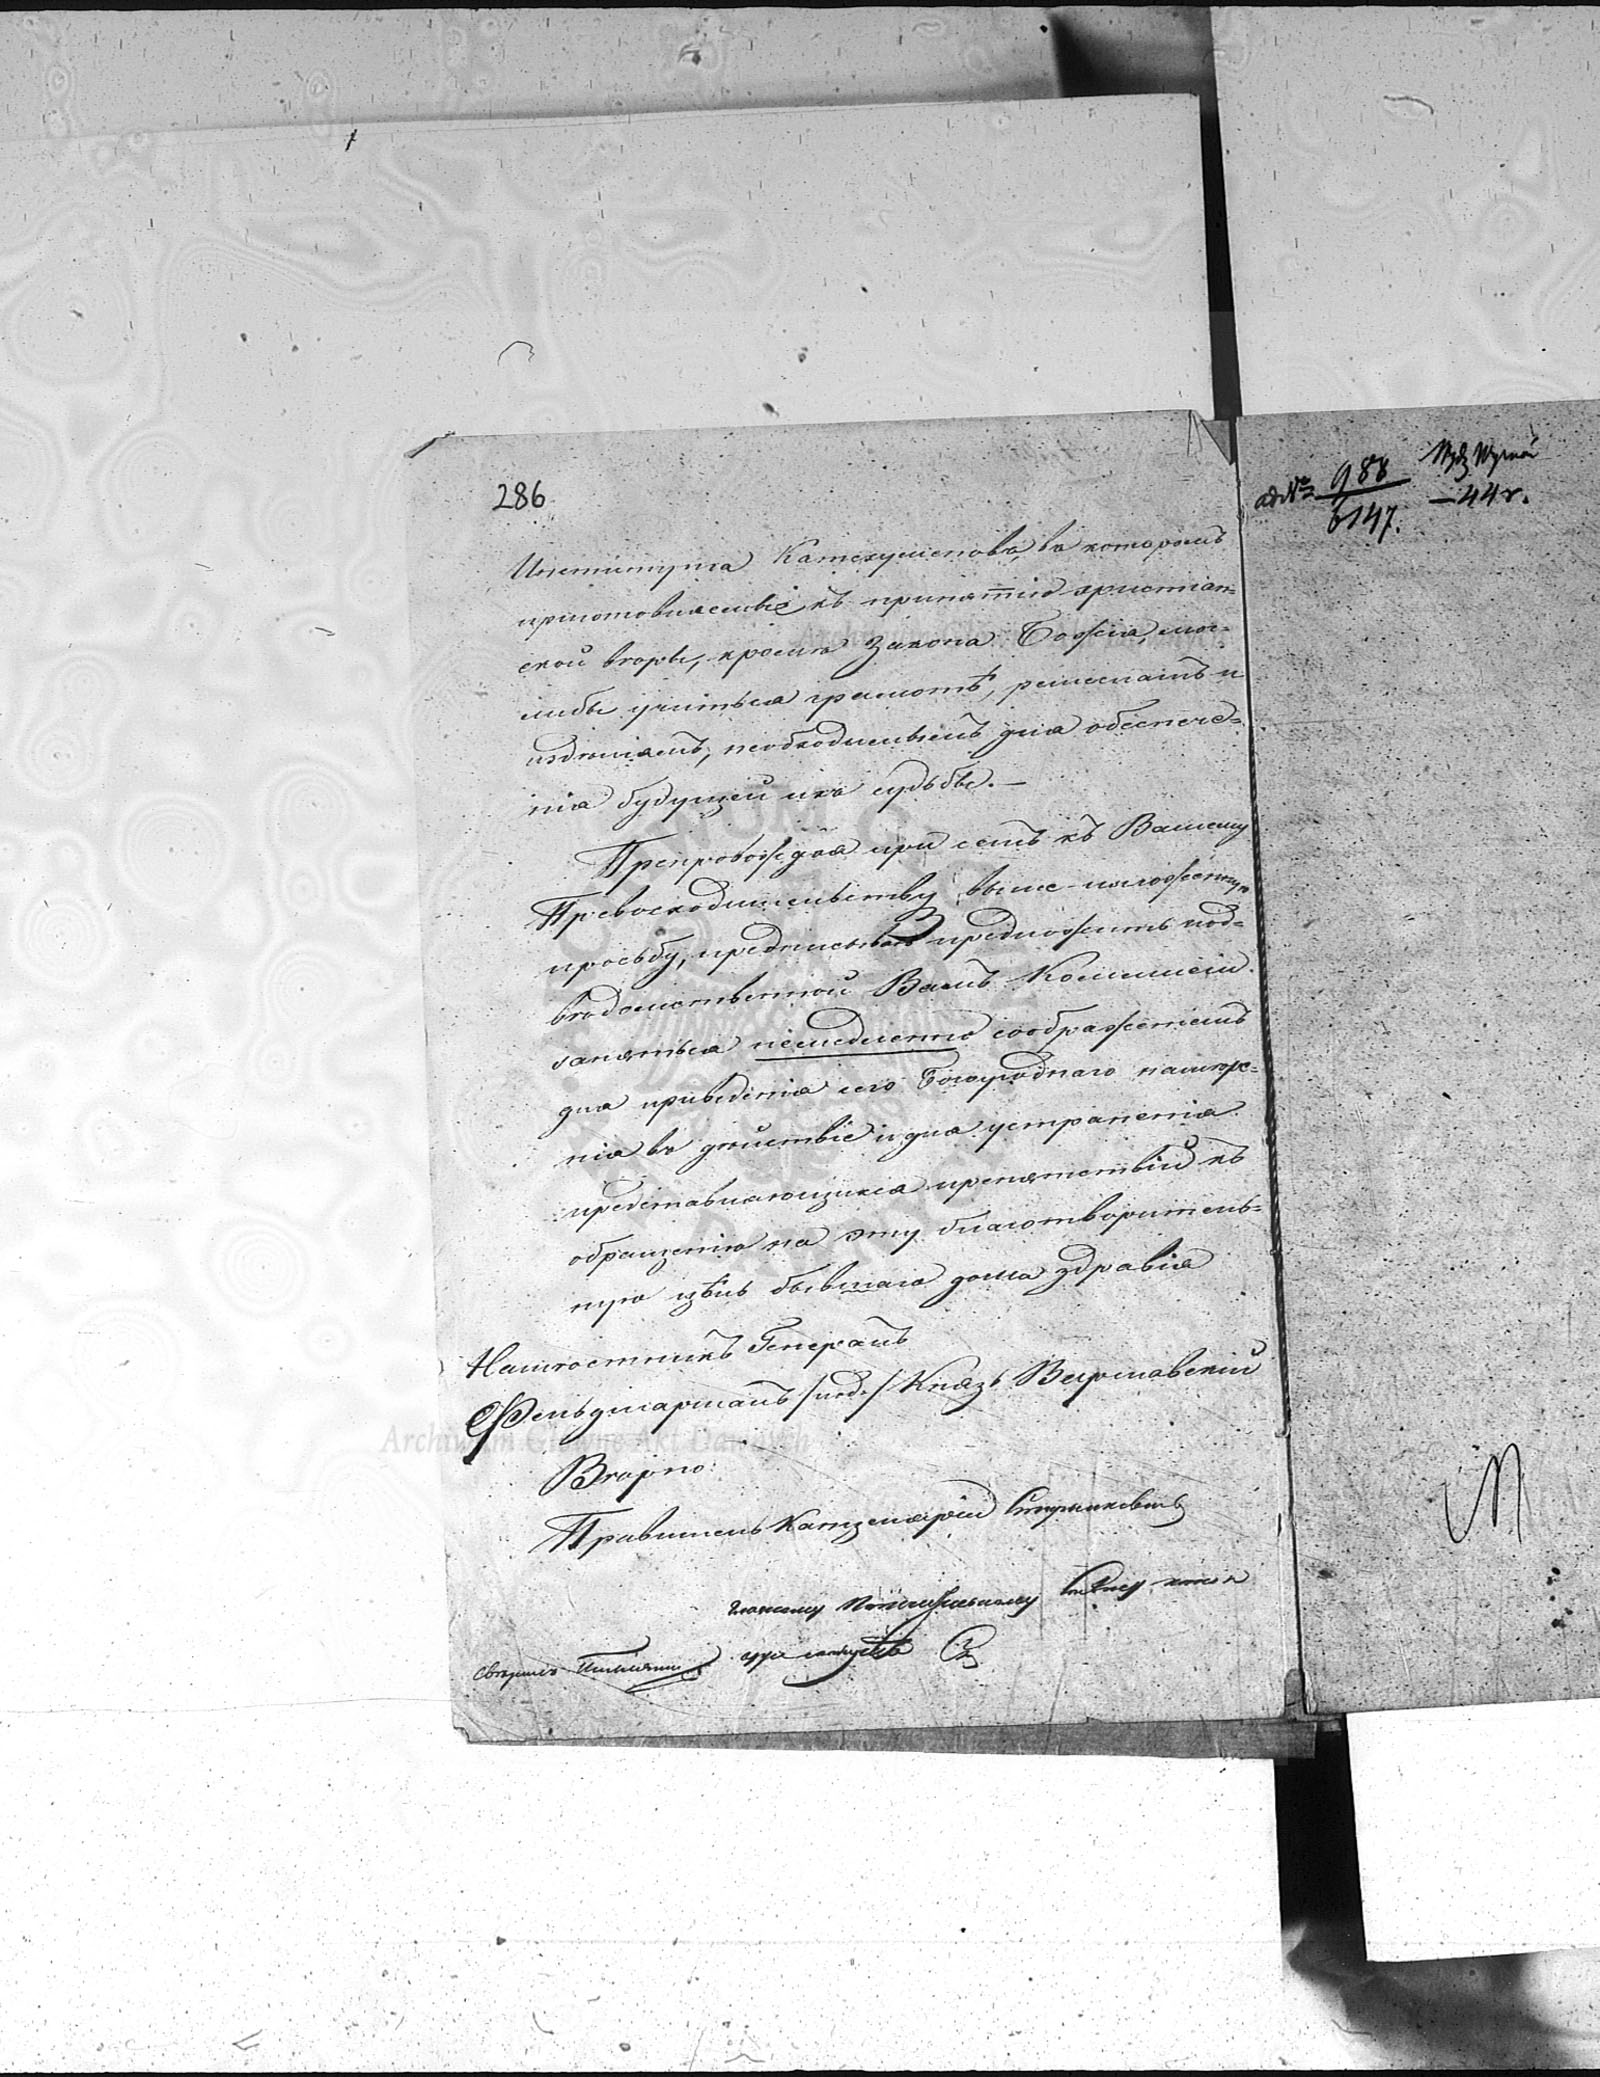 286
Института Катехуменовъ, въ которомъ
приготовляемые къ принятію христіан=
ской вѣры, кромѣ Закона Божія, мог=
либы учиться грамотѣ, ремесламъ и
издѣліямъ, необходимымъ для обеспече=
нія будущей ихъ судьбы. —
Препровождая при семъ къ Вашему
Превосходительству выше-изложенную
просьбу, предписываю предложить под=
вѣдомственной Вамъ Коммисіи
заняться немедленно соображеніемъ
для приведенія сего Богоугоднаго намѣре=
нія въ дѣйствіе и для устраненія
представляющихся препятствій къ
обращенію на эту благотворитель=
ную цѣль бывшаго дома здравія
Намѣстникъ Генералъ
Фельдмаршалъ /под./ Князь Варшавскій
Вѣрно:
Правитель Канцеляріи
свѣрилъ
ad № 988
6147.
— 44 г.
Archiwum Główne Akt Dawnych